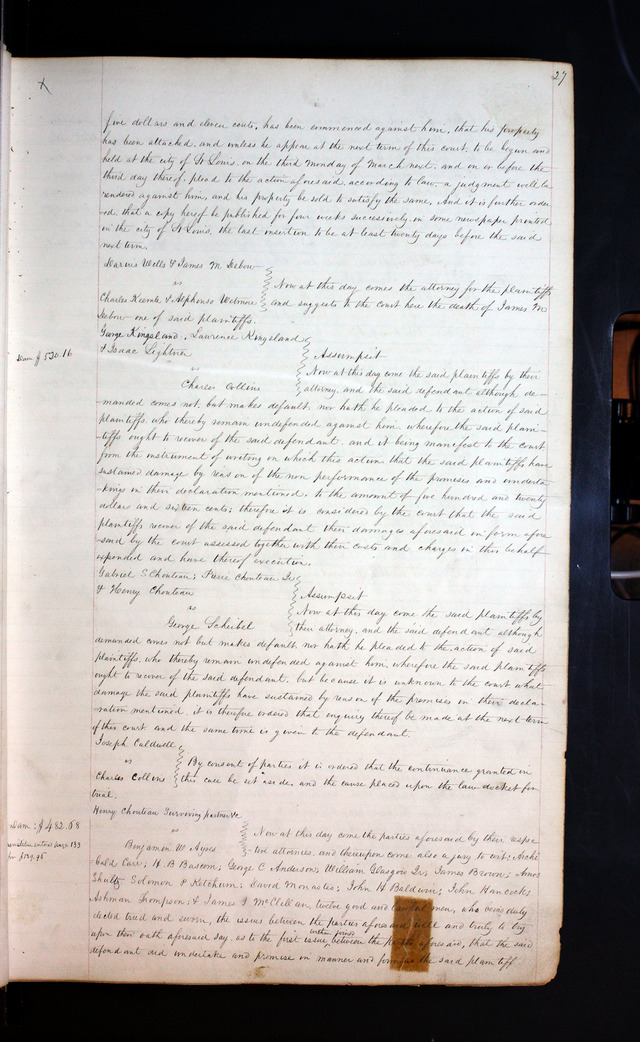 27
five dollars and eleven cents, has been commenced against him, that his property
has been attached, and unless he appear at the next term of this court, to be begun and
held at the city of St Louis, on the third Monday of March next, and on or before the
third day thereof, plead to the action aforesaid, according to law, a judgment will be
rendered against him, and his property be sold to satisfy the same. And it is further orde
red, that a copy hereof be published for four weeks successively, in some newspaper printed
in the city of St Louis, the last insertion to be at least twenty days before the said
next term.
Darius Wells & James M. Debow
vs
Charles Keemle & Alphonso Wetmore
Now at this day comes the attorney for the plaintiffs
and suggests to the Court here the death of James M
Debow one of said plaintiffs.
George Kingsland, Lawrence Kingsland
& Isaac Lightner
vs
Charles Collins
Dam $ 520.16
Assumpsit
Now at this day come the said plaintiffs by their
attorney, and the said defendant although de-
manded comes not, but makes default, nor hath he pleaded to the action of said
plaintiffs, who thereby remain undefended against him, wherefore the said plain-
tiffs ought to recover of the said defendant, and it being manifest to the court
from the instrument of writing on which this action that the said plaintiffs have
sustained damage by reason of the non performance of the promises and underta-
kings in their declaration mentioned, to the amount of five hundred and twenty
dollars and sixteen cents; therefore it is considered by the court that the said
plaintiffs recover of the said defendant their damages aforesaid in form afore
said by the court assessed together with their costs and charges in this behalf
expended and have thereof execution.
Gabriel S Chouteau, Pierre Chouteau Jr
& Henry Chouteau
vs
George Scheibel
Assumpsit
Now at this day come the said plaintiffs by
their attorney, and the said defendant although
demanded comes not but makes default, nor hath he pleaded to the action of said
plaintiffs, who thereby remain undefended against him, wherefore the said plaintiffs
ought to recover of the said defendant, but because it is unknown to the court what
damage the said plaintiffs have sustained by reason of the premises in their decla-
ration mentioned, it is therefore ordered that enquiry thereof be made at the next term
of this court and the same time is given to the defendant.
Joseph Caldwell
vs
Charles Collins
By consent of parties it is ordered that the continuance granted in
this case be set aside, and the cause placed upon the law docket for
trial.
Henry Chouteau Surviving partner &c
vs
Benjamin W Ayres
Dam: $ 482.68
page 133
Now at this day come the parties aforesaid by their respec
tive attornies, and thereupon come also a jury to wit; Archi
bald Carr; H. B Bascom; George C Anderson; William Glasgow Jr; James Brown; Amos
Shultz Solomon P Ketchum; David Monastes; John H Baldwin; John Hancocks
Ashman Thompson; & James I McClellan, twelve good and lawful men, who being duly
elected tried and sworn, the issues between the parties aforesaid well and truly to try
upon their oath aforesaid say, as to the first issue within joined between the parties aforesaid, that the said
defendant did undertake and promise in manner and form as the said plaintiff